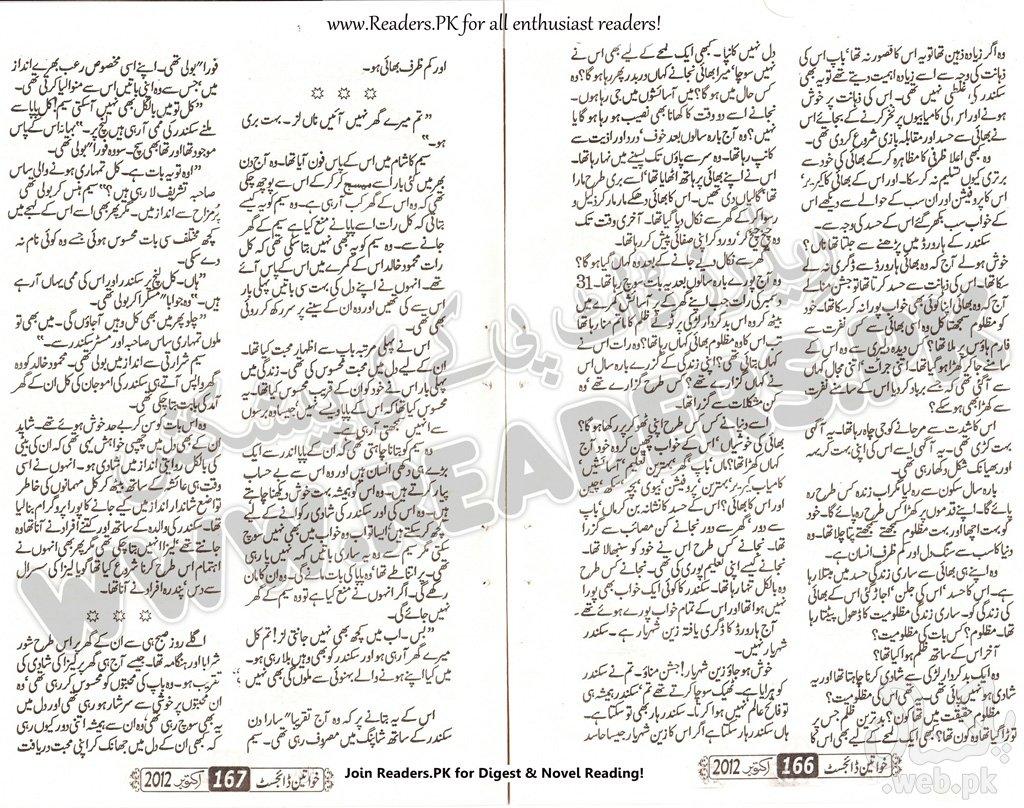 www.Readers.PK for all enthusiast readers!
وہ اگر زیادہ ذہین تھا تو یہ اس کا قصور نہ تھا، باپ اس کی
ذہانت کی وجہ سے اسے زیادہ اہمیت دیتے تھے تو یہ بھی
سکندر کی غلطی نہیں تھی۔ اس کی ذہانت پر خوش
ہونے اور اس کی کامیابیوں پر فخر کرنے کے بجائے اس
نے بھائی سے حسد اور مقابلہ بازی شروع کر دی تھی۔
وہ بھی اعلا ظرفی کا مظاہرہ کر کے بھائی کی خود سے
برتری کیوں تسلیم نہ کر سکا۔ اور اس کے بھائی کا کیریر،
اس کا پروفیشن اور ان سب کے حوالے سے دیکھے اس
کے خواب سب بکھر گئے اس کے حسد کی وجہ سے۔
سکندر کے ہارورڈ میں پڑھنے سے جلتا تھا ناں؟
خوش ہو لے آج کہ وہ بھائی ہارورڈ سے ڈگری نہ لے
سکا تھا۔ اس کی ذہانت سے حسد کرتا تھا تو جشن منا لے
آج کہ وہ بھائی اپنا کوئی بھی خواب پورا نہ کر سکا تھا۔ خود
کو مظلوم سمجھتا کل وہ اسی بھائی سے کس نفرت سے
فارم ہاؤس پر ملا تھا؟ کس دیدہ دلیری سے وہ اس کے
سامنے جا کر کھڑا ہو گیا تھا۔ اتنی جرات، اتنی مجال کہاں
سے آ گئی تھی کہ جسے برباد کر دیا اس کے سامنے نفرت
سے کھڑا بھی ہو سکے؟
اس کا شدت سے مر جانے کو جی چاہ رہا تھا۔ یہ آگہی
بہت کڑی تھی۔ یہ آگہی اسے اس کی اپنی بہت کریہہ
اور بھیانک شکل دکھا رہی تھی۔
بارہ سال سکون سے رہ لیا، مگر اب زندہ کس طرح رہ
پائے گا۔ اپنے قدموں پر کھڑا کس طرح رہ پائے گا۔ خود
کو بہت اچھا اور مظلوم سمجھتے سمجھتے پتا چلا تھا۔ وہ
دنیا کا سب سے سنگ دل اور کم ظرف انسان ہے۔
وہ اپنے ہی بھائی سے ساری زندگی حسد میں مبتلا رہا
ہے۔ اس کا حسد، اس کی جلن، اجاڑ گئی اس کے بھائی
کی زندگی کو۔ ساری زندگی مظلومیت کا ڈھول پیٹتا رہا
تھا۔ مظلوم؟ کس بات کی مظلومیت؟
آخر اس کے ساتھ ظلم ہوا کیا تھا؟
وہ ایک بد کردار لڑکی سے شادی کرنا چاہتا تھا اور یہ
شادی ہو نہیں پائی تھی۔ یہ تھی اس کی مظلومیت؟
مظلوم حقیقت میں تھا کون؟ بد ترین ظلم جس پر
توڑا گیا تھا وہ کون تھا؟ کبھی ایک لمحے کے لیے بھی اس کا
دل نہیں کانپا۔ کبھی ایک لمحے کے لیے بھی اس نے
نہیں سوچا، میرا بھائی نجانے کہاں در بدر پھر رہا ہو گا؟ وہ
کس حال میں ہو گا؟ میں آسائشوں میں جی رہا ہوں۔
نجانے اسے دو وقت کا کھانا بھی نصیب ہو رہا ہو گا یا
نہیں؟ وہ آج بارہ سالوں بعد خوف، درد اور اذیت سے
کانپ رہا تھا۔ وہ سر سے پاؤں تک پسینے میں نہا رہا تھا۔
اس نے اپنے بھائی پر ہاتھ اٹھایا تھا، اسے بری طرح مارا
تھا، گالیاں دی تھیں۔ اس کا بھائی دھکے مار مار کر ذلیل و
رسوا کر کے گھر سے نکال دیا گیا تھا۔ آخری وقت تک
وہ چیخ چیخ کر، رو رو کر اپنی صفائی پیش کر رہا تھا۔
گھر سے نکال دیے جانے کے بعد وہ کہاں گیا ہو گا؟
وہ آج پورے بارہ سالوں بعد یہ بات سوچ رہا تھا۔ 31
دسمبر کی رات جب اپنے گھر کے آرام دہ کمرے میں
بیٹھ کر وہ اس بد کردار لڑکی پر ٹوٹے ظلم کا ماتم منا رہا تھا
تب اس کا وہ مظلوم بھائی کہاں رہا تھا؟ وہ رات اس نے
کہاں بتائی تھی؟ اپنی زندگی کے گزرے بارہ سال اس
نے کہاں گزارے تھے؟ کس طرح گزارے تھے؟ وہ
کن مشکلات سے گزرا تھا۔
اسے دنیا نے کس کس طرح اپنی ٹھوکر پر رکھا ہو گا؟
بھائی کی خوشیاں، اس کے خواب چھین کر وہ خود آج
کہاں کھڑا تھا؟ ماں باپ، گھر، بہترین تعلیم، آسائشیں،
کامیاب کیریر، بہترین پروفیشن، بیوی، بچہ، سکھ، چین
اور اس کا بھائی؟ اس کے حسد کا نشانہ بن کر ماں باپ
سے دور، گھر سے دور نجانے کن مصائب سے گزرا
تھا۔ نجانے کس طرح اس نے خود کو سنبھالا تھا۔
نجانے کیسے اپنی تعلیم پوری کی تھی۔ نجانے کس طرح
وہ بالکل تنہا رہا تھا۔ سکندر کا کوئی ایک خواب بھی پورا
نہیں ہوا تھا اور اس کے تمام خواب پورے ہوئے تھے۔
آج ہارورڈ کا ڈگری یافتہ زین شہریار ہے۔ سکندر
شہریار نہیں۔
خوش ہو جاؤ زین شہریار! جشن مناؤ۔ تم نے سکندر
کو ہرا دیا ہے۔ ٹھیک سوچا کرتے تھے تم، سکندر ہمیشہ ہی
تو فاتح عالم نہیں ہوا کرتا۔ سکندر ہار بھی تو سکتا ہے۔
سکندر ہار بھی تو سکتا ہے اگر اس کا زین شہریار جیسا حاسد
خواتین ڈائجسٹ 166 اکتوبر 2012
اور کم ظرف بھائی ہو۔
”تم میرے گھر نہیں آئیں ناں لز۔ بہت بری
ہو۔“
سیم کا شام میں اس کے پاس فون آیا تھا۔ وہ آج دن
بھر میں کئی بار اسے میسج کر کر کے اس سے پوچھ چکی
تھی کہ وہ اس کے گھر کب آ رہی ہے۔ وہ سیم کو یہ کیسے
بتاتی کہ کل رات اسے پاپا نے منع کیا ہے سیم کے گھر
جانے سے۔ وہ سیم کو یہ بھی نہیں بتا سکتی تھی کہ کل
رات محمود خالد اس کے کمرے میں اس کے پاس آئے
تھے۔ انہوں نے اپنے دل کی بہت سی باتیں پہلی بار
اس سے کی تھیں اور وہ ان کے سینے پر سر رکھ کر روئی
بھی تھی۔
اس نے پہلی مرتبہ باپ سے اظہار محبت کیا تھا۔
ان کے لیے دل میں محبت محسوس کی تھی۔ زندگی میں
پہلی بار اس نے خود کو ان کے قریب محسوس کیا تھا۔ یہ
محسوس کیا تھا کہ اس کے پاپا ویسے نہیں جیسا وہ برسوں
سے انہیں سمجھتی آ رہی ہے۔
وہ سیم کو بتانا چاہتی تھی کہ ان کے پاپا اندر سے ایک
بڑے ہی دکھی انسان ہیں اور وہ اس سے بے حساب
پیار کرتے ہیں۔ وہ اس کو ہمیشہ بہت خوش دیکھنا چاہتے
ہیں۔ وہ اس کی اور سکندر کی شادی رکوانے کے لیے
کچھ کر سکتے ہیں، ایسا تو اب وہ خواب میں بھی نہیں سوچ
سکتی مگر سیم سے وہ یہ ساری باتیں کہہ نہیں پا رہی
تھی۔ پر اتنا طے تھا، وہ پاپا کی بات مانے گی۔ وہ ان کا مان
رکھے گی۔ اگر انہوں نے منع کیا ہے تو وہ سیم کے گھر
نہیں جائے گی۔
”بس۔ اب میں کچھ بھی نہیں جانتی لز! تم کل
میرے گھر آ رہی ہو اور سکندر کو بھی وہیں بلا رہی ہو۔
میں کیا اپنے ہونے والے بہنوئی سے ملوں گی بھی نہیں؟“
اس کے یہ بتانے پر کہ وہ آج تقریبا“ سارا دن
سکندر کے ساتھ شاپنگ میں مصروف رہی تھی۔ سیم
فورا“ بولی تھی۔ اپنے اسی مخصوص رعب بھرے انداز
میں، جس سے وہ اپنی باتیں اس سے منوا لیا کرتی تھی۔
”کل تو میں بالکل بھی نہیں آ سکتی سیم! کل پاپا سے
ملنے سکندر کی ممی آ رہی ہیں لنچ پر۔“ بہانہ اس کے پاس
موجود تھا اور تھا بھی سچ۔ سو وہ فورا“ بولی تھی۔
”اوہ تو یہ بات ہے۔ کل تمہاری ہونے والی ساس
صاحبہ تشریف لا رہی ہیں؟“ سیم ہنس کر بولی تھی
پر مزاح سے انداز میں۔ مگر پھر بھی اسے اس کے لہجے میں
کچھ مختلف سی بات محسوس ہوئی جسے وہ کوئی نام نہ
دے سکی۔
”ہاں۔ کل لنچ پر سکندر اور اس کی ممی یہاں آ رہے
ہیں۔“ وہ جوابا“ مسکرا کر بولی تھی۔
”چلو پھر میں بھی کل وہیں آ جاؤں گی۔ میں بھی تو
ملوں تمہاری ساس صاحبہ اور مسٹر سکندر سے۔“
سیم شرارتی سے انداز میں بولی تھی۔ محمود خالد کو وہ
گھر واپس آتے ہی سکندر کی امو جان کی کل ان کے گھر
آمد کی بابت بتا چکی تھی۔
وہ اس بات کو سن کر بے حد خوش ہوئے تھے۔ شاید
ان کے بھی دل میں چھپی خواہش یہی تھی کہ ان کی بیٹی
کی بالکل روایتی انداز میں شادی ہو۔ انہوں نے اسی
وقت ہی عائشہ کے ساتھ بیٹھ کر کل مہمانوں کی خاطر
تواضع شاندار انداز میں کیے جانے کا پورا پروگرام بنا لیا
تھا۔ سکندر کی والدہ کے ساتھ اور کتنے افراد نے آنا تھا وہ
جانتے تھے، لیزا انہیں بتا چکی تھی مگر پھر بھی انہوں نے
اہتمام اس طرح کرنا شروع کیا تھا گویا لیزا کی سسرال
سے دس، پندرہ افراد نے آنا تھا۔
اگلے روز صبح ہی سے ان کے گھر پر اس طرح شور
شرابا اور ہنگامہ تھا۔ جیسے آج ہی گھر پر لیزا کی شادی کی
تقریب ہو۔ وہ باپ کی محبتوں کو محسوس کر رہی تھی، وہ
ان محبتوں پر خوشی سے سرشار ہو رہی تھی اور دل میں
یہ بھی سوچ رہی تھی وہ ان سے ہمیشہ اتنی دور کیوں رہی
کہ بھی ان کے دل میں جھانک کر اپنی محبت دریافت
خواتین ڈائجسٹ 167 اکتوبر 2012
Join Readers.PK for Digest & Novel Reading!
WWW.READERS.PK
ریڈرز ڈاٹ پی کے کی پیشکش
.web.pk